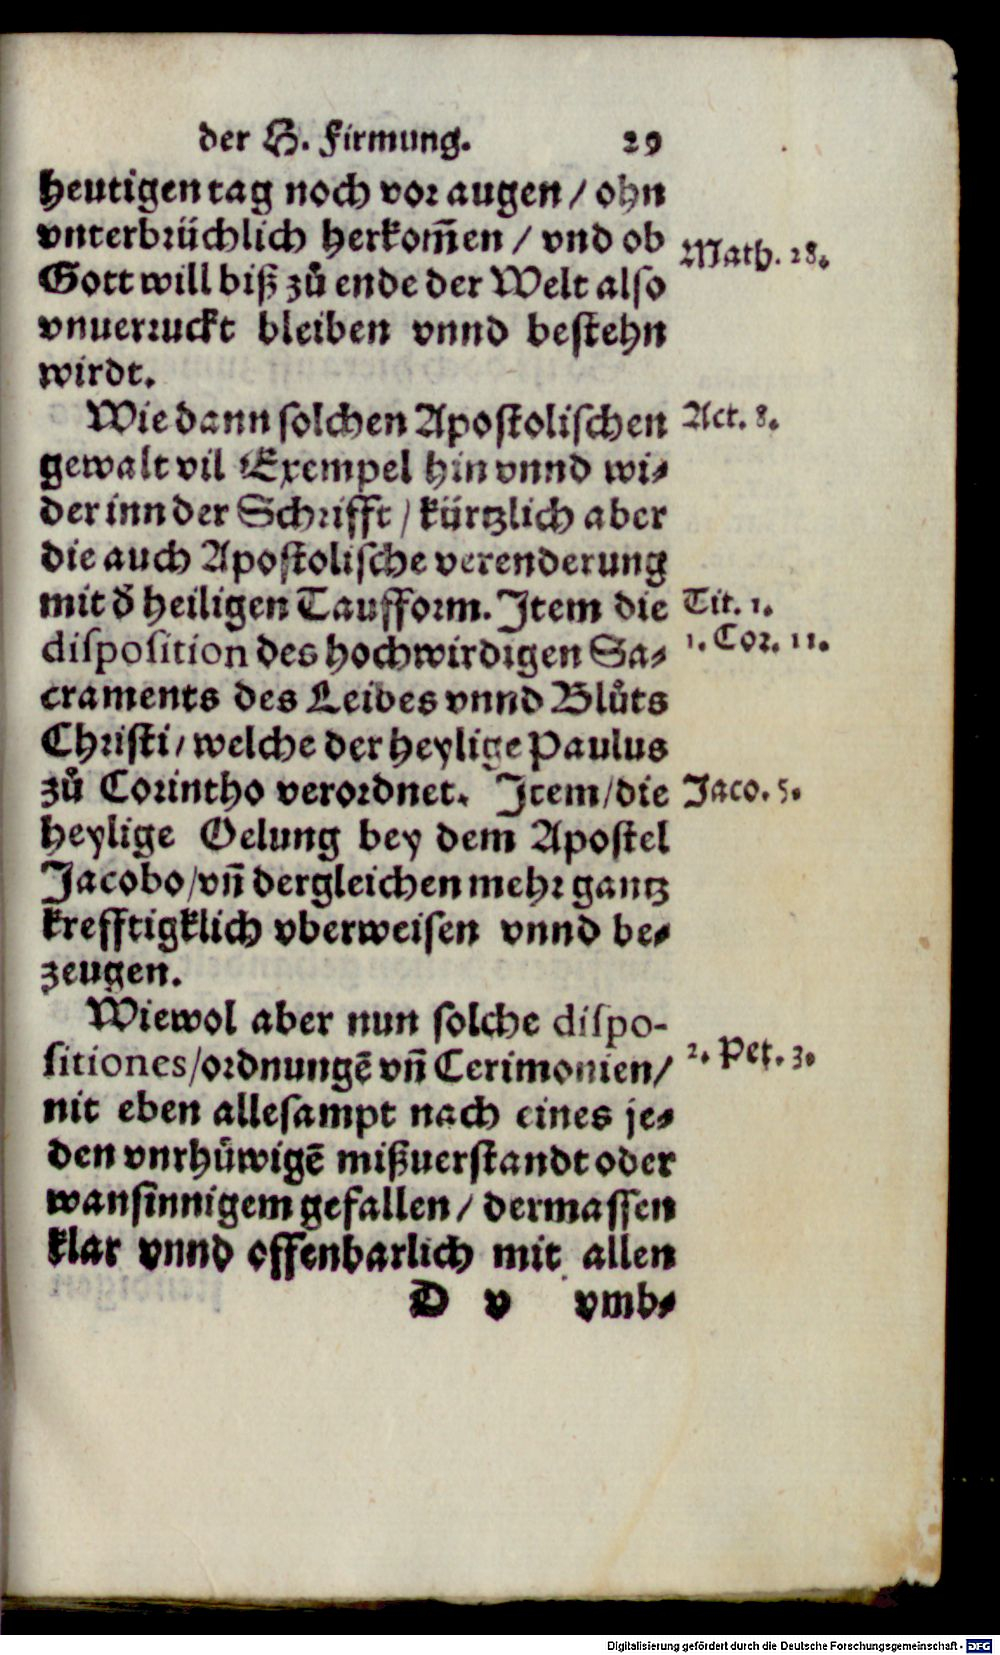 der H. Firmung. 29
heutigen tag noch vor augen / ohn
vnterbrüchlich herkom̃en / vnd ob
Math. 28.
Gott will biß zů ende der Welt also
vnuerruckt bleiben vnnd bestehn
wirdt.
Wie dann solchen Apostolischen
Act. 8.
gewalt vil Exempel hin vnnd wi⸗
der inn der Schrifft / kürtzlich aber
die auch Apostolische verenderung
mit d̕ heiligen Taufform. Item die
Tit. 1.
disposition des hochwirdigen Sa⸗
1. Cor. 11.
craments des Leibes vnnd Blůts
Christi / welche der heylige Paulus
zů Corintho verordnet. Item / die
Jaco. 5.
heylige Oelung bey dem Apostel
Jacobo / vñ dergleichen mehr gantz
krefftigklich vberweisen vnnd be⸗
zeugen.
Wiewol aber nun solche dispo-
sitiones / ordnungẽ vñ Cerimonien /
2. Pet. 3.
nit eben allesampt nach eines je⸗
den vnrhůwigẽ mißuerstandt oder
wansinnigem gefallen / dermassen
klar vnnd offenbarlich mit allen
D v vmb⸗
Digitalisierung gefördert durch die Deutsche Forschungsgemeinschaft - DFG